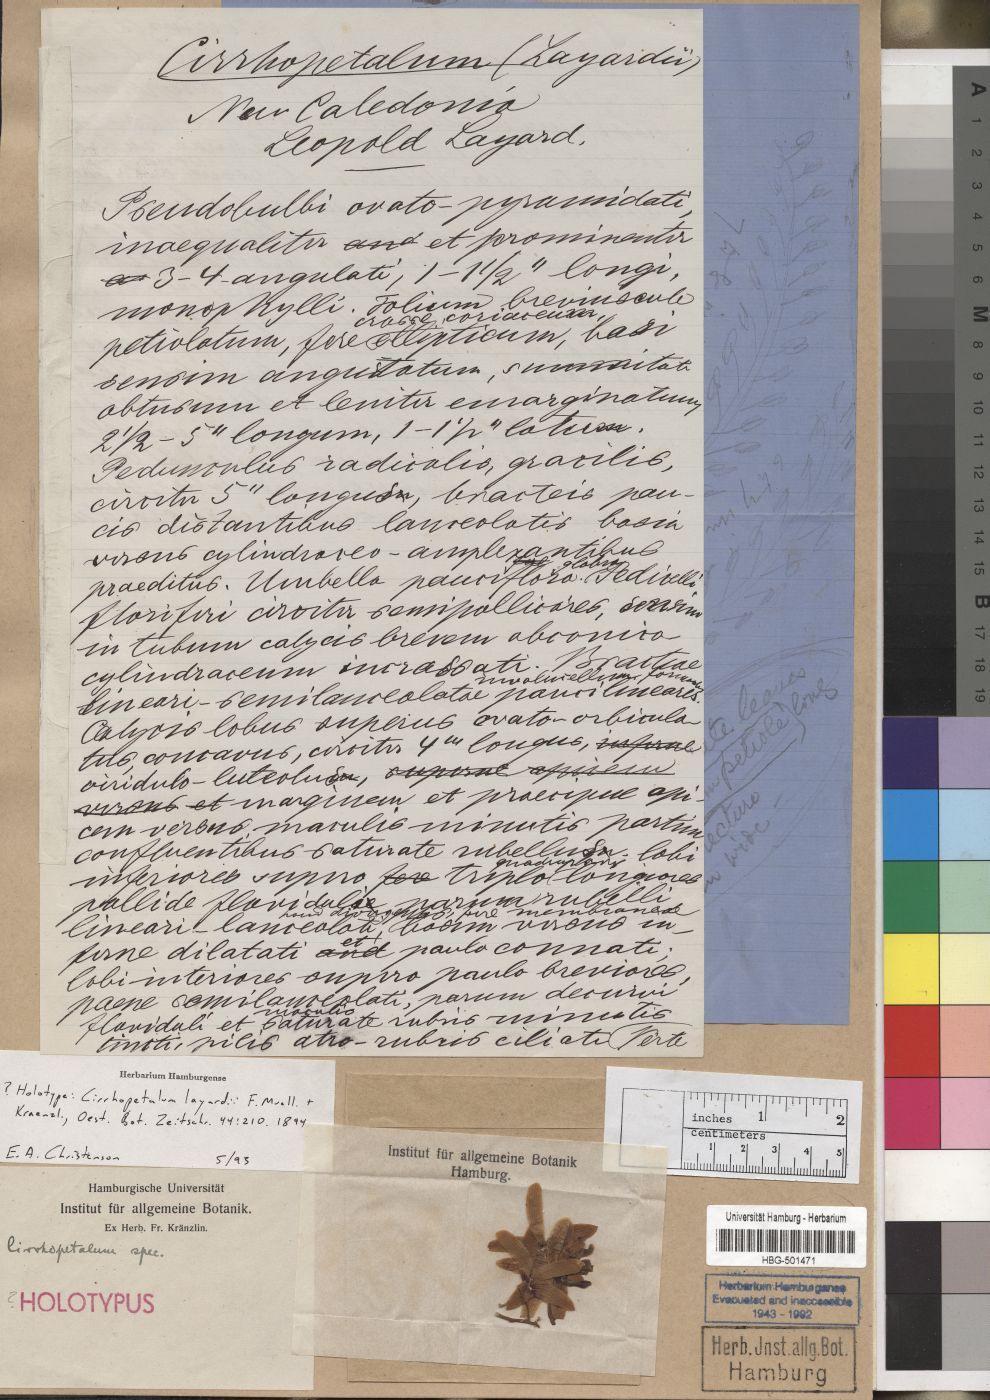 Cirrhopetalum (Layardii)
New Caledonia
Leopold Layard.
Pseudobulbi ovato-pyramidati,
inaequaliter and et prominenter
3-4-angulati, 1-1 1/2" longi,
monophylli. Folium breviuscule
crasse coriaceum,
petiolatum, fere ellipticum, basi
sensim angustatum, summitate
obtusum et leniter emarginatum,
2 1/2 - 5" longum, 1-1 1/2" latum.
Pedunculus radicalis, gracilis,
circiter 5" longus, bracteis pau-
cis distantibus lanceolatis basin
versus cylindraceo-amplexantibus
praeditus. Umbella pauciflora. Pedicelli
floriferi circiter semipollicares, sensim
in tubum calycis brevem obconico-
cylindraceum incrassati. Bracteae
involucellum formantes
lineari-semilanceolatae pauci lineares.
Calycis lobus superus ovato-orbicula-
tus, concavus, circiter 4''' longus, inferne
viridulo-luteolus, superne apicem
versus et marginem et praecipue api-
cem versus maculis minutis partim
confluentibus saturate rubellus. lobi
inferiores supero fere triplo longiores
pallide flaviduli, parum rubelli
haud divergentes, fere membranacei
lineari-lanceolati, basim versus in-
ferne dilatati and et paulo connati;
lobi interiores supero paulo breviores,
paene semilanceolati, parum decurvi
maculis
flaviduli et saturate rubris minutis
tincti, pilis atro-rubris ciliati Verte
Herbarium Hamburgense
? Holotype: Cirrhopetalum layardii F. Muell. +
Kraenzl., Oest. Bot. Zeitschr. 44:210. 1894
E. A. Christenson 5/93
Hamburgische Universität
Institut für allgemeine Botanik.
Ex Herb. Fr. Kränzlin.
Cirrhopetalum spec.
? HOLOTYPUS
Institut für allgemeine Botanik
Hamburg.
inches 1 2
centimeters
1 2 3 4 5
Universität Hamburg - Herbarium
HBG-501471
Herbarium Hamburgense
Evacuated and inaccessible
1943 - 1992
Herb. Jnst. allg. Bot.
Hamburg
A 1 2 3 4 5 6 M 8 9 10 11 12 13 14 15 B 17 18 19